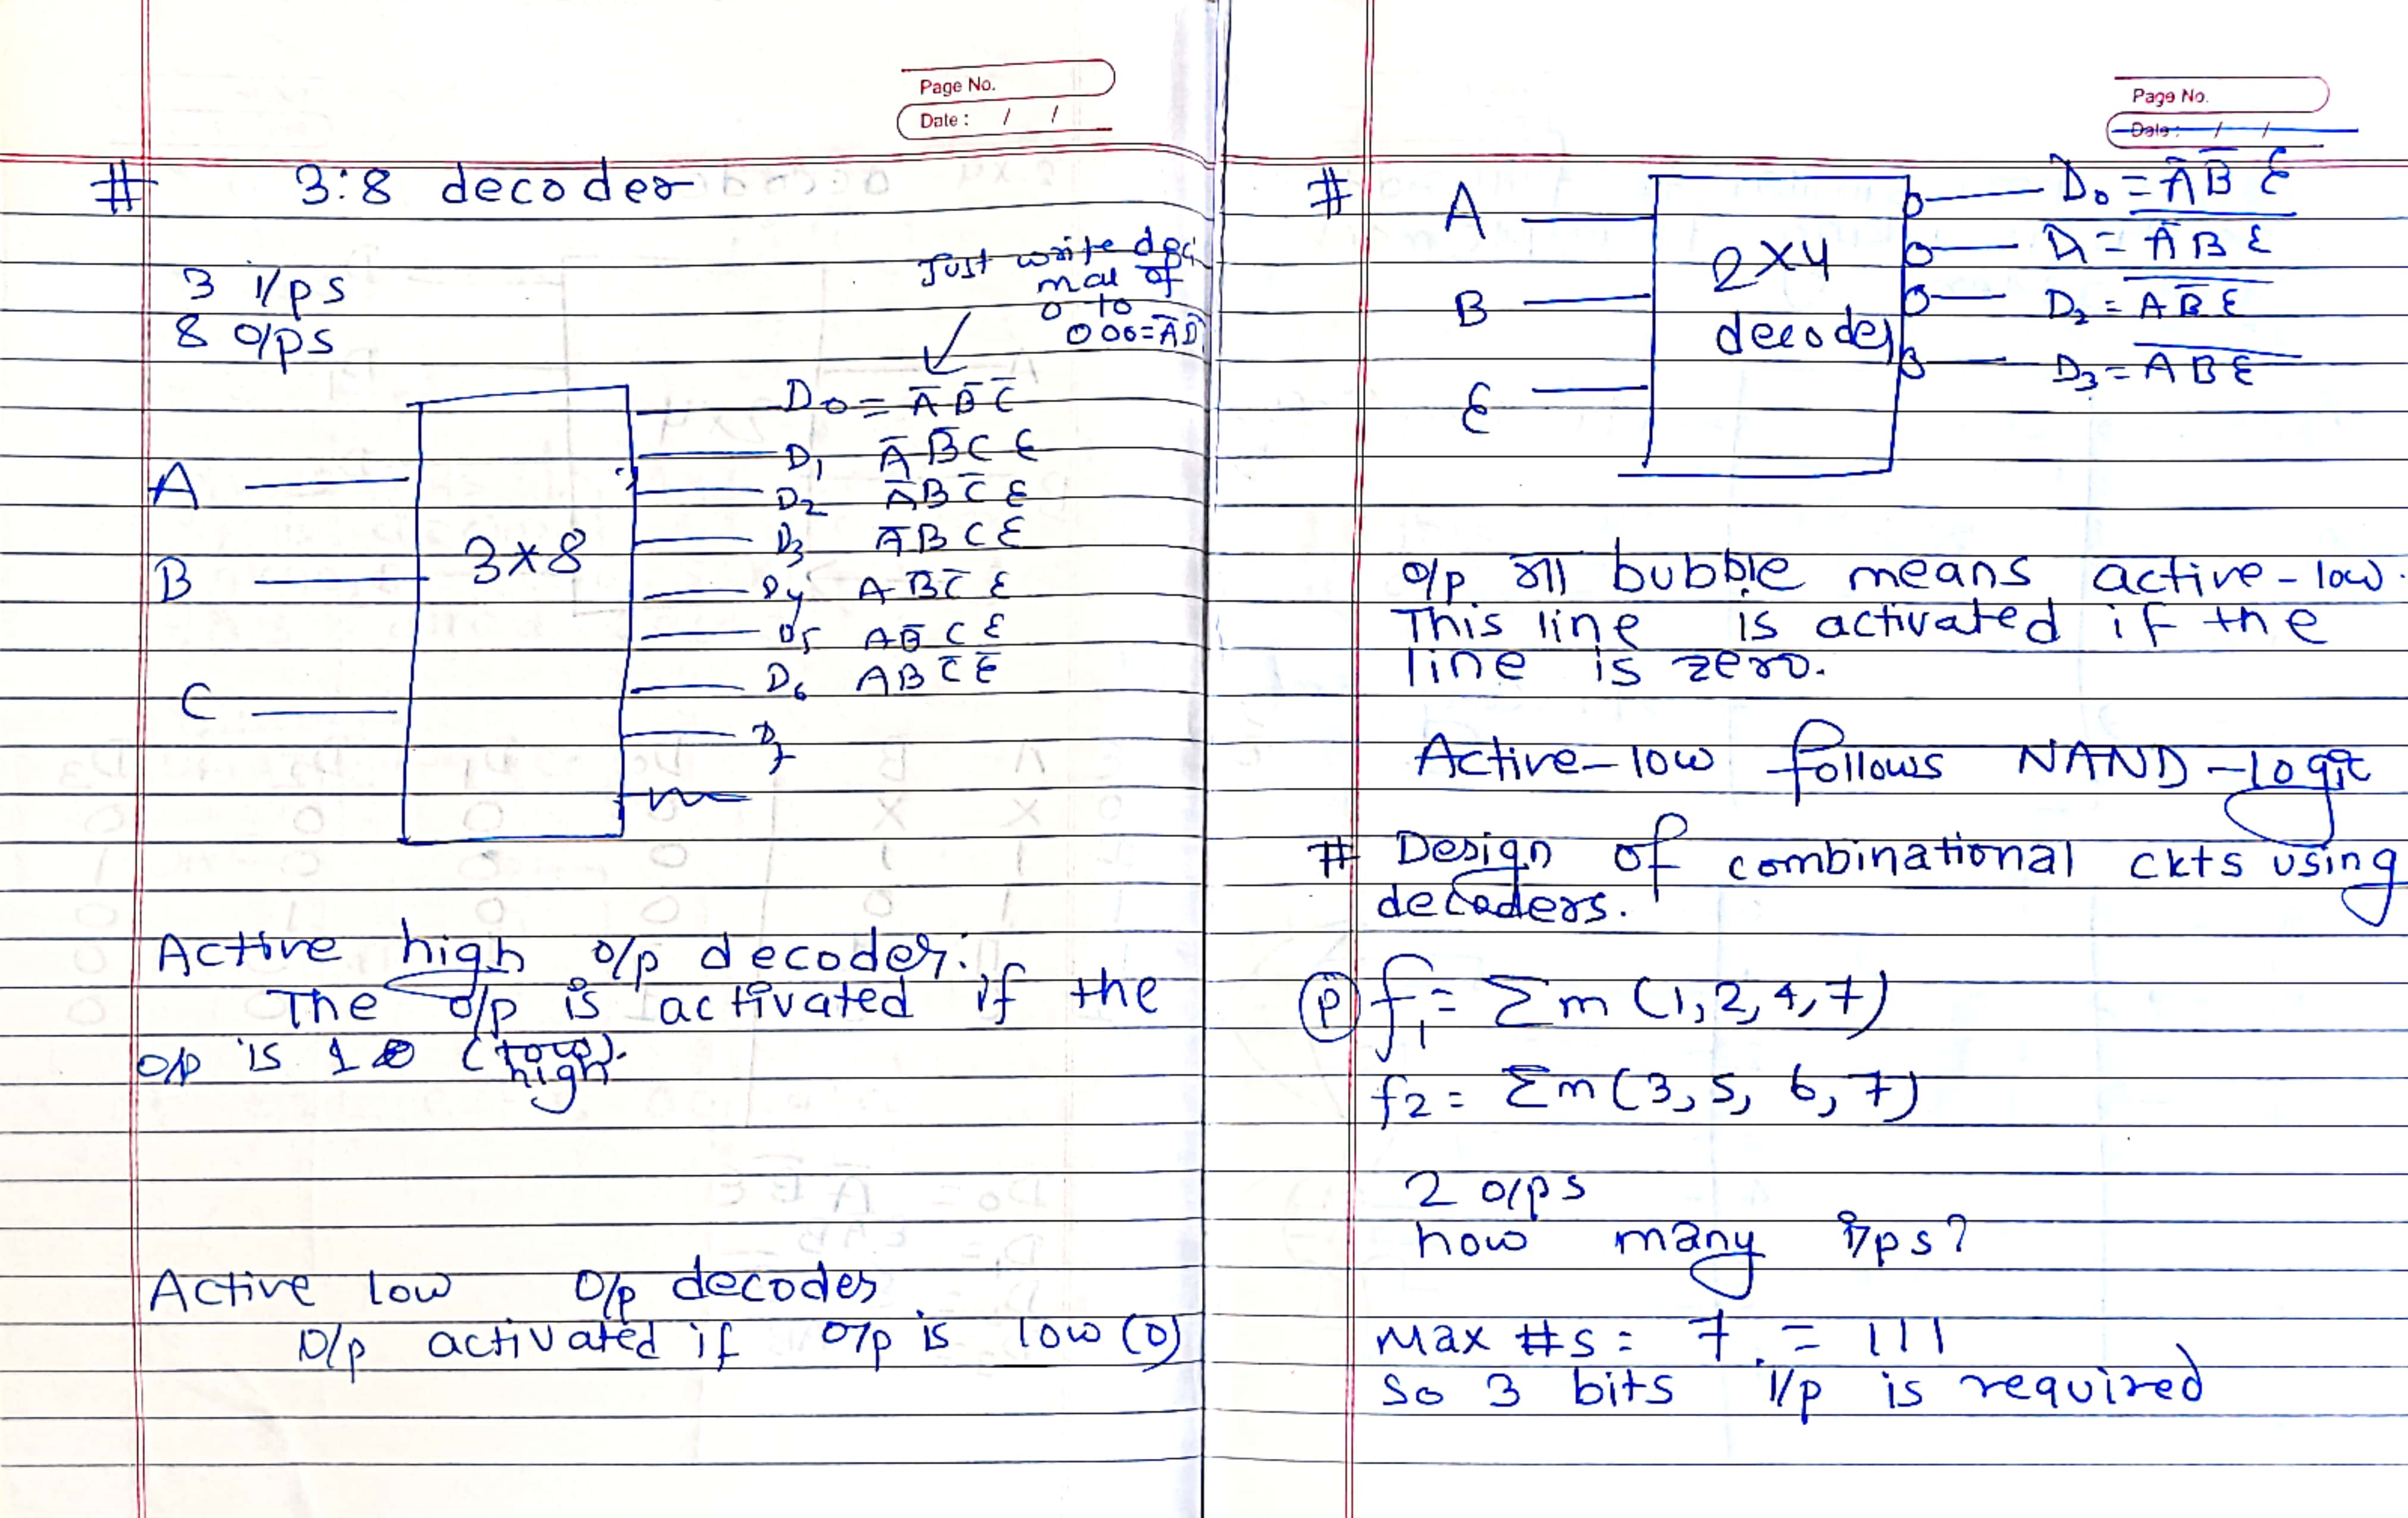 Page No.
Date : / /
# 3:8 decoder
3 i/ps
8 o/ps
Just write deci
mal of
0 to
000=A̅D̅
D0 = A̅ B̅ C̅
D1 A̅ B̅ C E
D2 A̅ B C̅ E
D3 A̅ B C E
D4 A B̅ C̅ E
D5 A B̅ C E
D6 A B C̅ E̅
D7
A
B
C
3×8
Active high o/p decoder:
The o/p is activated if the
o/p is 1 (low).
high
Active low O/p decoder
O/p activated if o/p is low (0)
Page No.
Date : / /
#
A
B
E
2×4
decoder
D0 = A̅ B̅ E
D1 = A̅ B E
D2 = A B̅ E
D3 = A B E
o/p bubble means active-low.
This line is activated if the
line is zero.
Active-low follows NAND-Logic
# Design of combinational ckts using
decoders.
(P) f1 = Σm (1,2,4,7)
f2 = Σm (3,5,6,7)
2 o/ps
how many i/ps?
Max #s = 7 = 111
so 3 bits i/p is required